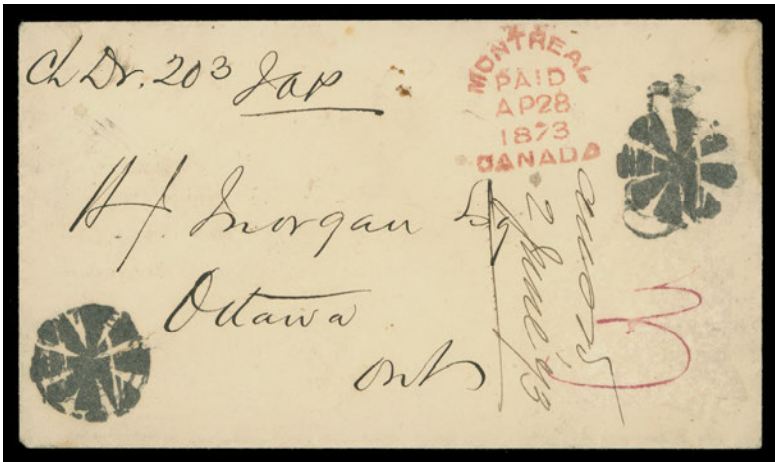 Ch Dr. 203
MONTREAL
PAID
AP 28
1873
CANADA
H.J. Morgan Esq
Ottawa
Ont
2 June '73
3